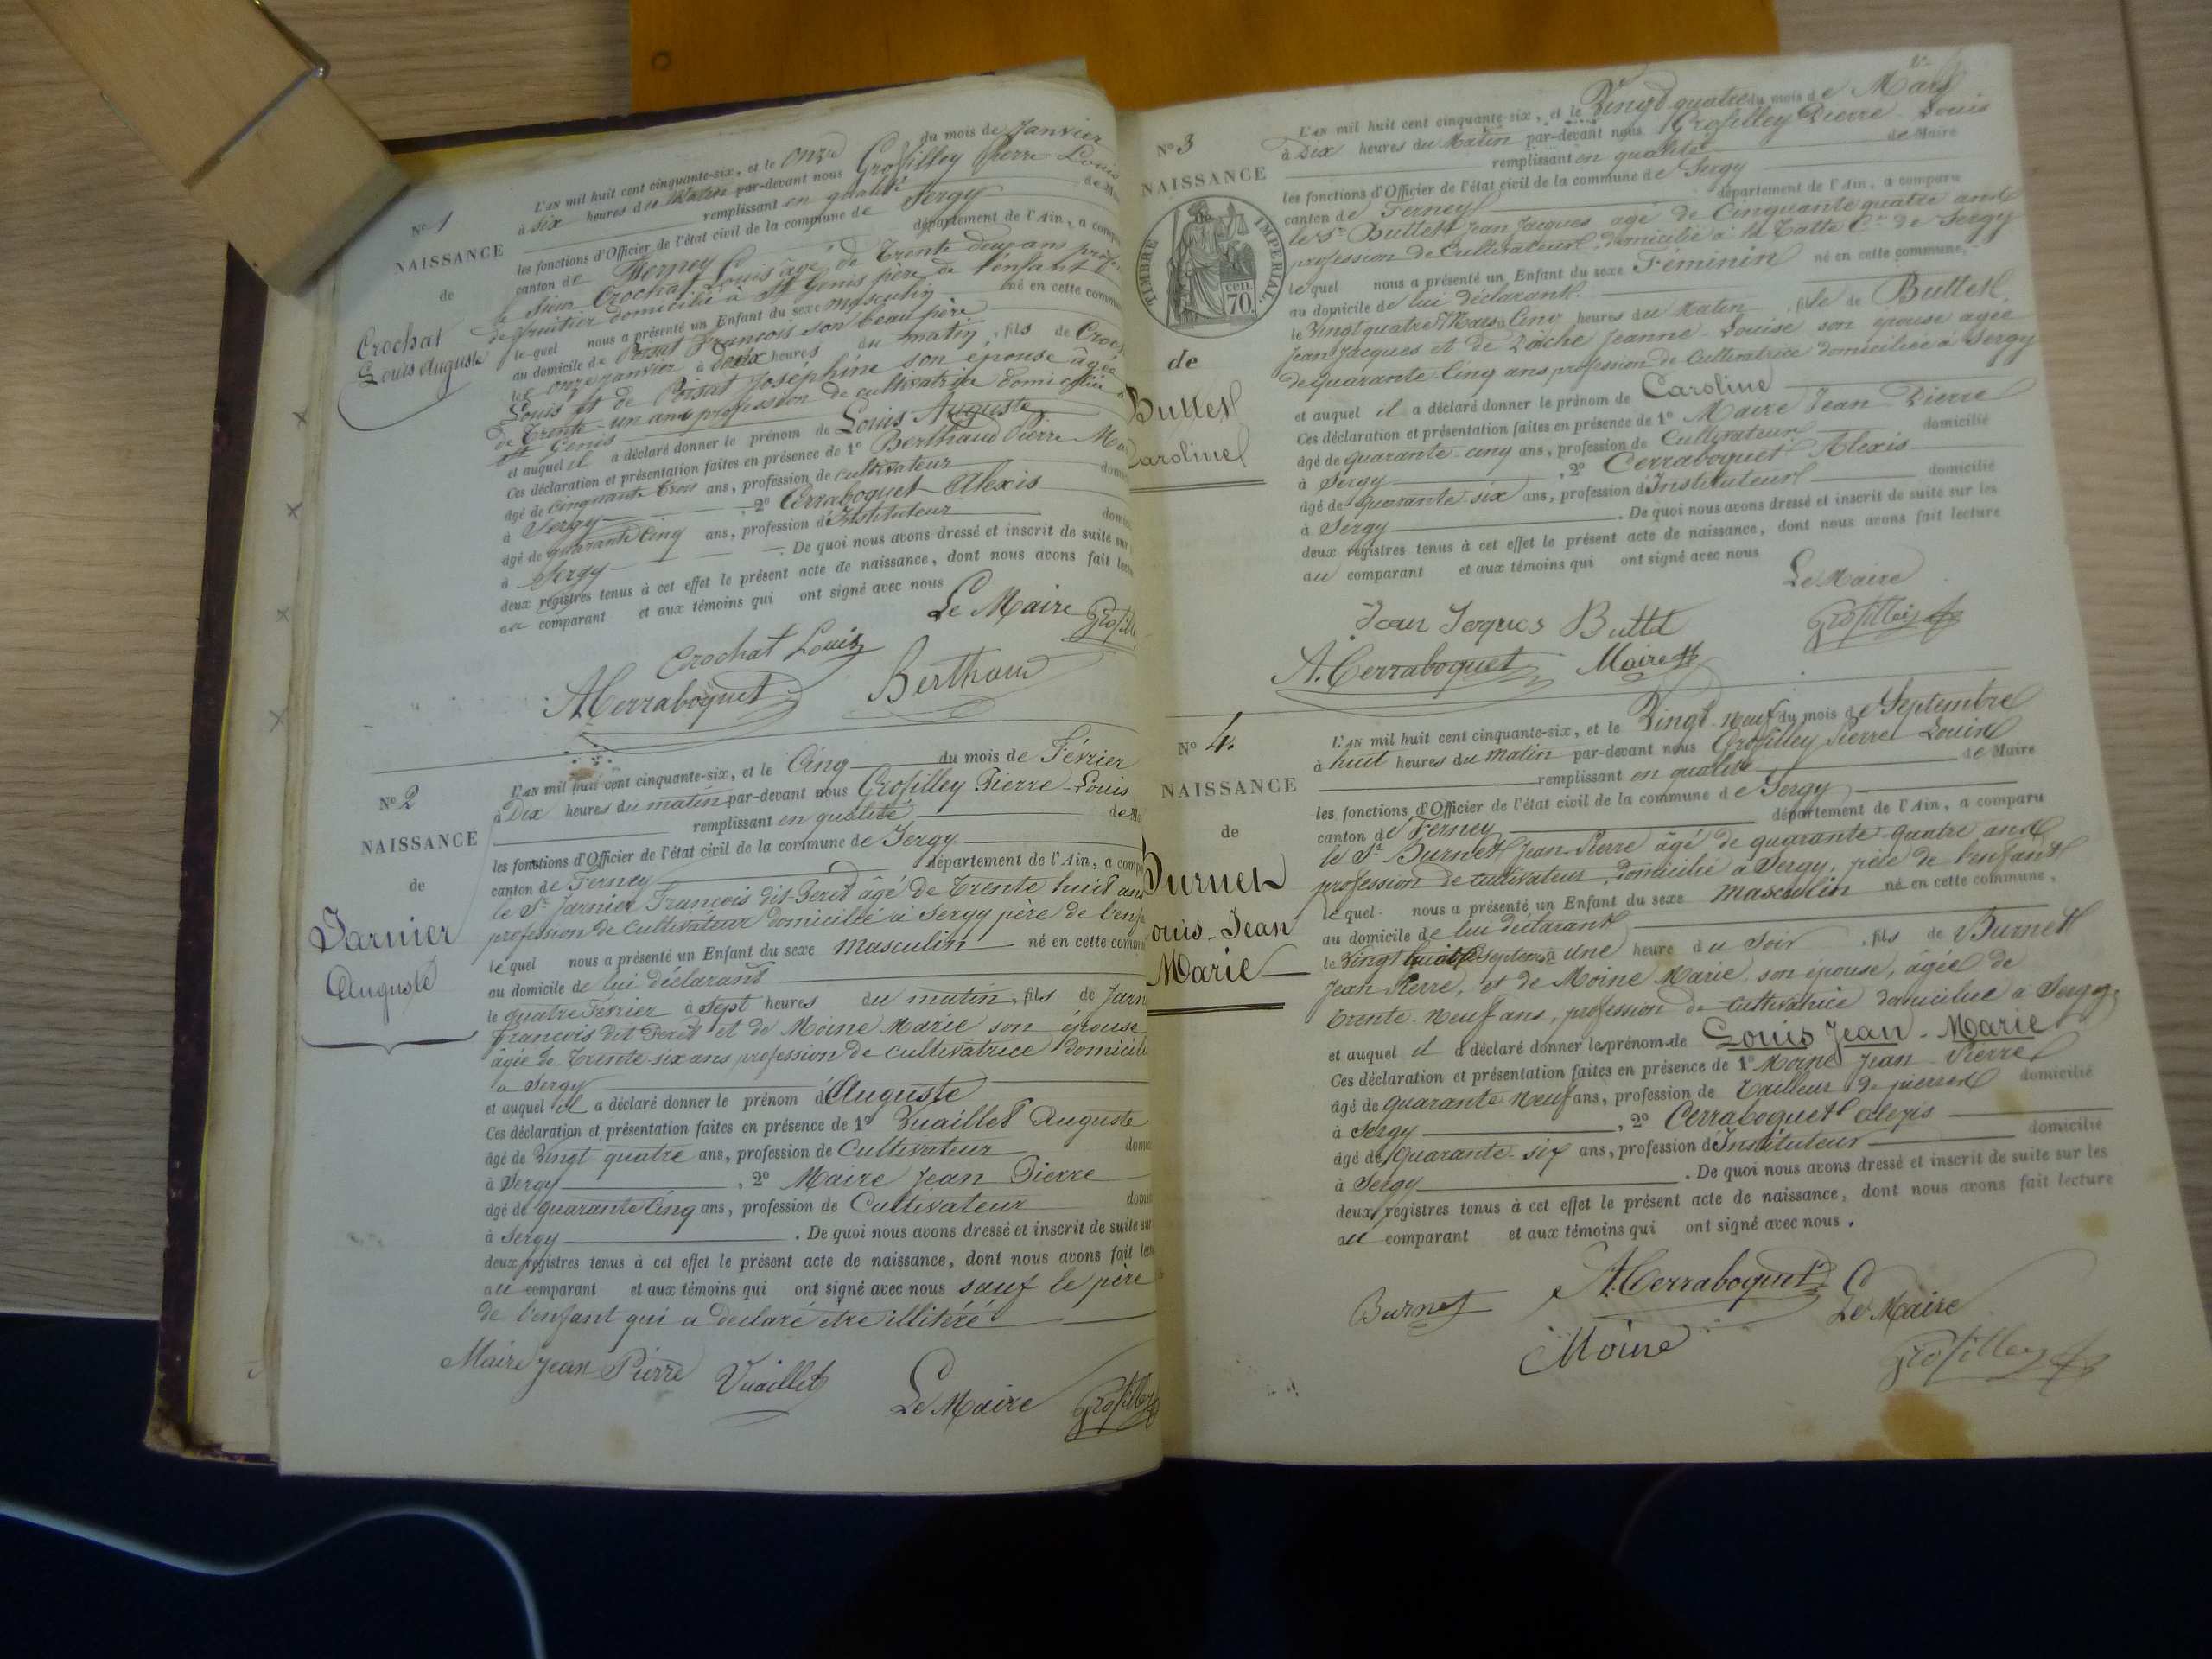 No 1
NAISSANCE
de
Crochat
Louis Auguste
L'AN mil huit cent cinquante-six, et le onze du mois de Janvier
à six heures du Matin par-devant nous Grosfilley Pierre Louis
remplissant en qualité de
les fonctions d'Officier de l'état civil de la commune de Sergy
canton de Ferney département de l'Ain, a
le Sieur Crochat Louis âgé de Trente deux ans
de fruitier domicilié à St Genis père de l'enfant
lequel nous a présenté un Enfant du sexe masculin né en cette
au domicile de Poisat François son beau père
le onze Janvier à deux heures du matin, fils de
Louis et de Poisat Joséphine son épouse âgée
de Trente-un ans profession de cultivatrice domiciliée
St Genis
et auquel il a déclaré donner le prénom de Louis Auguste
Ces déclaration et présentation faites en présence de 1º Berthaud Pierre
âgé de cinquante trois ans, profession de cultivateur
à Sergy , 2º Cerraboquet Alexis
âgé de quarante Cinq ans, profession d'Instituteur
à Sergy . De quoi nous avons dressé et inscrit de suite sur
deux registres tenus à cet effet le présent acte de naissance, dont nous avons fait
au comparant et aux témoins qui ont signé avec nous
Le Maire
Crochat Louis
A Cerraboquet Berthaud
No 2
NAISSANCE
de
Jarnier
Auguste
L'AN mil huit cent cinquante-six, et le Cinq du mois de Février
à Dix heures du matin par-devant nous Grosfilley Pierre-Louis
remplissant en qualité de
les fonctions d'Officier de l'état civil de la commune de Sergy
canton de Ferney département de l'Ain, a
le Sr Jarnier François dit Peret âgé de Trente huit ans
profession de Cultivateur domicilié à Sergy père de
lequel nous a présenté un Enfant du sexe masculin né en cette
au domicile de lui déclarant
le quatre Février à sept heures du matin, fils de
François dit Peret et de Moine Marie son épouse
âgée de Trente-six ans profession de cultivatrice
à Sergy
et auquel il a déclaré donner le prénom d'Auguste
Ces déclaration et présentation faites en présence de 1º Vuaillet Auguste
âgé de Vingt quatre ans, profession de Cultivateur
à Sergy , 2º Maire Jean Pierre
âgé de quarante Cinq ans, profession de Cultivateur
à Sergy . De quoi nous avons dressé et inscrit de suite sur
deux registres tenus à cet effet le présent acte de naissance, dont nous avons fait
au comparant et aux témoins qui ont signé avec nous sauf le père
de l'enfant qui a déclaré être illitéré
Maire Jean Pierre Vuaillet Le Maire
No 3
NAISSANCE
TIMBRE IMPERIAL
cen. 70.
de
Buttet
Caroline
L'AN mil huit cent cinquante-six, et le Vingt-quatre du mois de Mars
à Dix heures du Matin par-devant nous Grosfilley Pierre Louis
remplissant en qualité de Maire
les fonctions d'Officier de l'état civil de la commune de Sergy
canton de Ferney département de l'Ain, a comparu
le Sr Buttet Jean Jacques agé de Cinquante quatre ans
profession de Cultivateur domicilié à la Batte Cne de Sergy
lequel nous a présenté un Enfant du sexe Féminin né en cette commune,
au domicile de lui déclarant.
le Vingt quatre Mars à Cinq heures du Matin, fille de Buttet
Jean Jacques et de Jeanne-Louise son épouse agée
de quarante-Cinq ans profession de Cultivatrice domiciliée à Sergy
et auquel il a déclaré donner le prénom de Caroline
Ces déclaration et présentation faites en présence de 1º Maire Jean Pierre
âgé de quarante-cinq ans, profession de Cultivateur domicilié
à Sergy , 2º Cerraboquet Alexis
âgé de quarante-six ans, profession d'Instituteur domicilié
à Sergy . De quoi nous avons dressé et inscrit de suite sur les
deux registres tenus à cet effet le présent acte de naissance, dont nous avons fait lecture
au comparant et aux témoins qui ont signé avec nous
Le Maire
Jean Jaques Buttet
A. Cerraboquet Maire
No 4.
NAISSANCE
de
Burnet
Louis-Jean
Marie
L'AN mil huit cent cinquante-six, et le Vingt-neuf du mois de Septembre
à huit heures du matin par-devant nous Grosfilley Pierre Louis
remplissant en qualité de Maire
les fonctions d'Officier de l'état civil de la commune de Sergy
canton de Ferney département de l'Ain, a comparu
le Sr Burnet Jean-Pierre âgé de quarante-quatre ans
profession de cultivateur, domicilié à Sergy, père de l'enfant
lequel nous a présenté un Enfant du sexe masculin né en cette commune,
au domicile de lui déclarant
le Vingt huit Septembre à Une heure du Soir, fils de Burnet
Jean-Pierre, et de Moine Marie son épouse, âgée de
trente-neuf ans, profession de cultivatrice domiciliée à Sergy.
et auquel il a déclaré donner les prénoms de Louis Jean-Marie
Ces déclaration et présentation faites en présence de 1º Moine Jean-Pierre
âgé de quarante-neuf ans, profession de Tailleur de pierres domicilié
à Sergy , 2º Cerraboquet Alexis
âgé de quarante-six ans, profession d'Instituteur domicilié
à Sergy . De quoi nous avons dressé et inscrit de suite sur les
deux registres tenus à cet effet le présent acte de naissance, dont nous avons fait lecture
au comparant et aux témoins qui ont signé avec nous.
Burnet A. Cerraboquet Le Maire
Moine Grosfilley